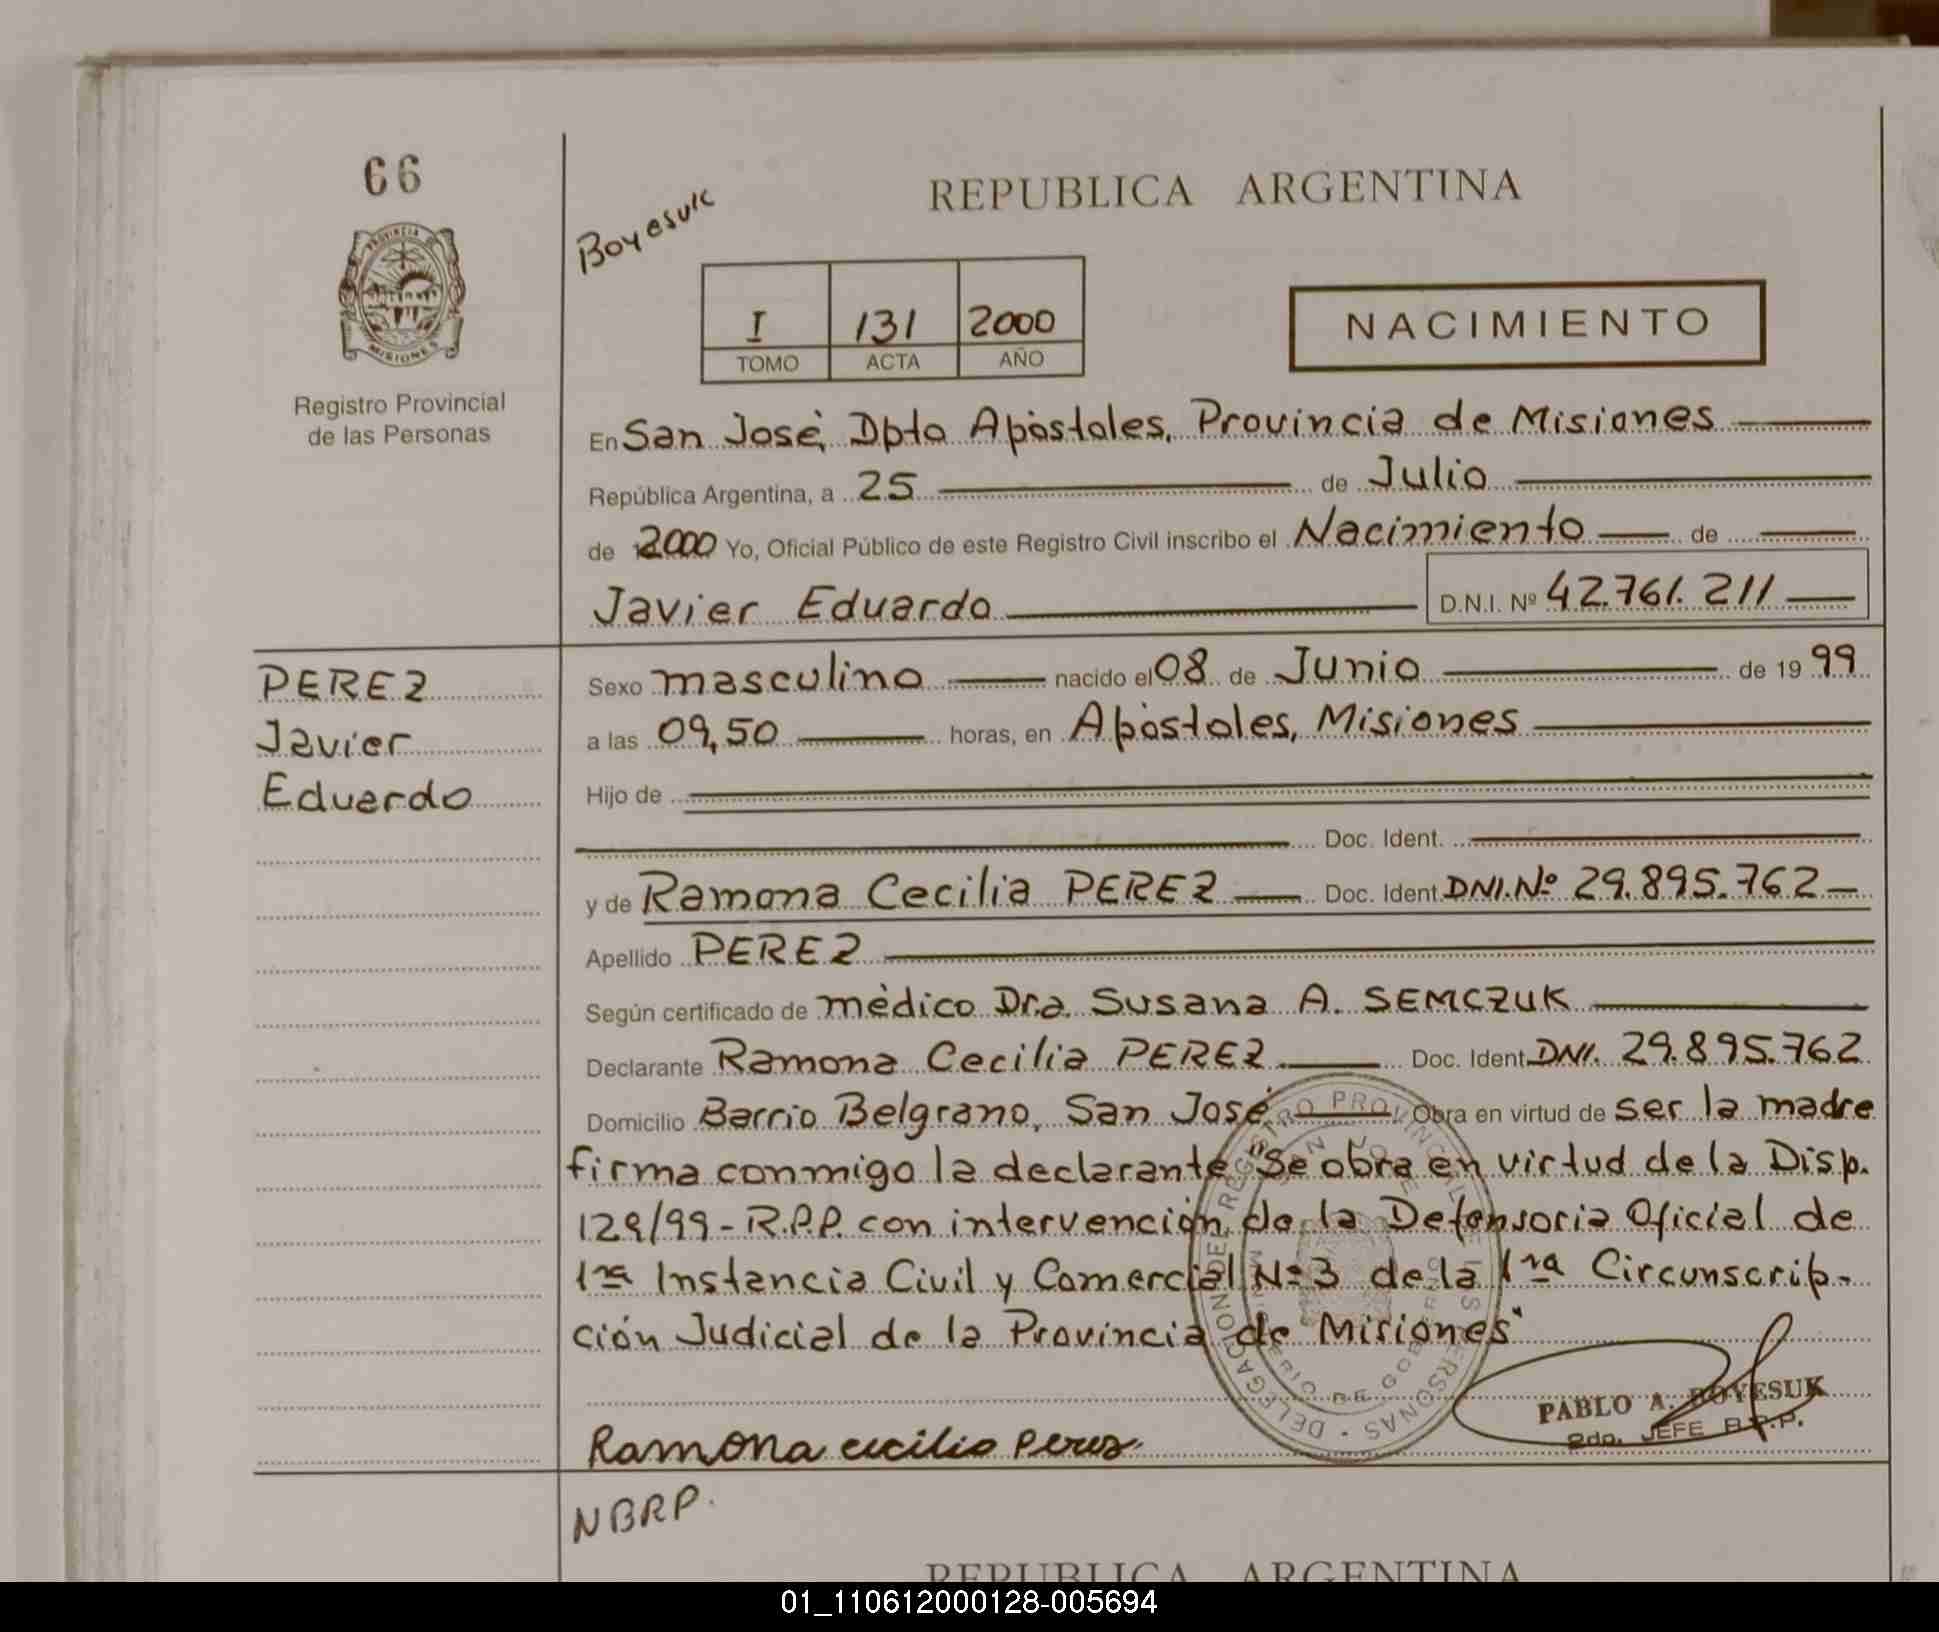 66
Boyesuk
REPUBLICA ARGENTINA
PROVINCIA DE
MISIONES
I 131 2000
TOMO ACTA AÑO
NACIMIENTO
Registro Provincial
de las Personas
En San José, Dpto Apóstoles, Provincia de Misiones
República Argentina, a 25 de Julio
de 2000 Yo, Oficial Público de este Registro Civil inscribo el Nacimiento de
Javier Eduardo D.N.I. Nº 42.761.211
PEREZ
Javier
Eduardo
Sexo masculino nacido el 08 de Junio de 1999
a las 09,50 horas, en Apóstoles, Misiones
Hijo de
Doc. Ident.
y de Ramona Cecilia PEREZ Doc. Ident. DNI. Nº 29.895.762
Apellido PEREZ
Según certificado de médico Dra. Susana A. SEMCZUK
Declarante Ramona Cecilia PEREZ Doc. Ident. DNI. 29.895.762
Domicilio Barrio Belgrano, San José Obra en virtud de ser la madre
firma conmigo la declarante "Se obra en virtud de la Disp.
129/99 - R.P.P. con intervención de la Defensoria Oficial de
1ra Instancia Civil y Comercial Nº 3 de la 1ra Circunscrip-
ción Judicial de la Provincia de Misiones"
DELEGACION DEL REGISTRO PROVINCIAL DE LAS PERSONAS
SAN JOSE
MINISTERIO DE GOBIERNO
PABLO A. BOYESUK
2do. JEFE B.R.P.
Ramona cecilia Perez
NBRP.
REPUBLICA ARGENTINA
01_110612000128-005694